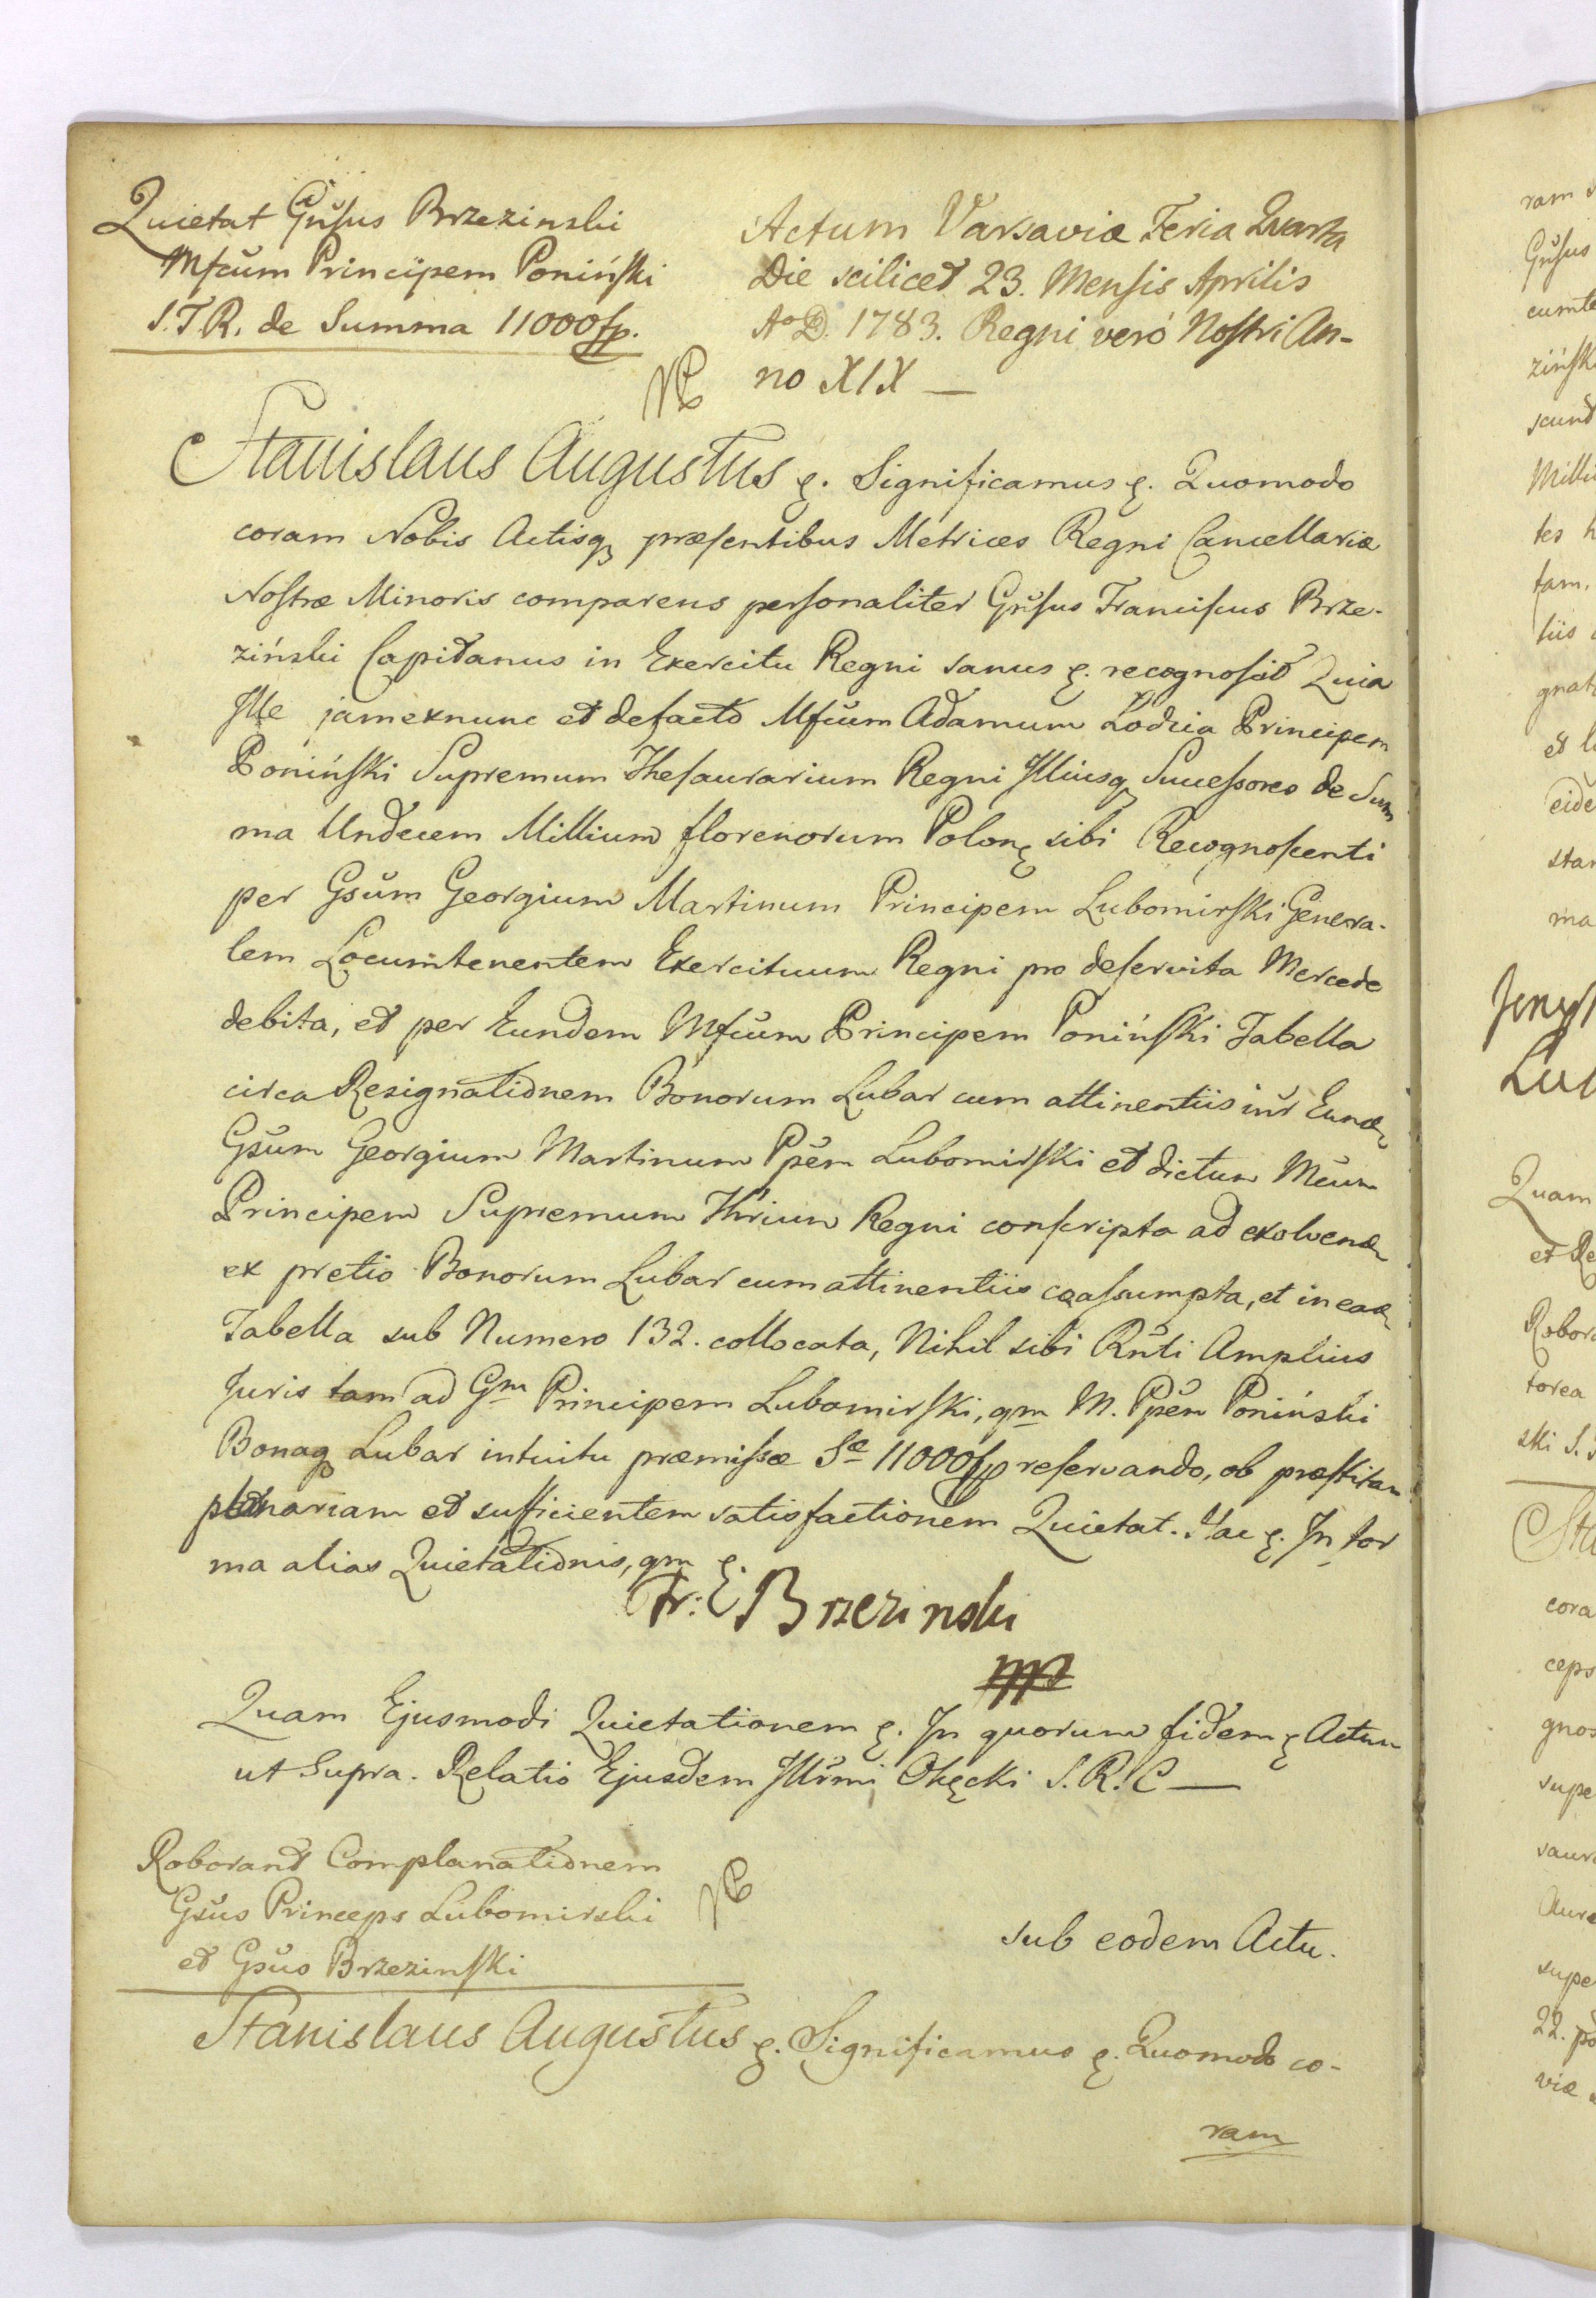 Quietat Gn̄sus Brzezinski
Mfcum Principem Poniński
S.T.R. de Summa 11000 fp.
Actum Varsaviæ Feria Quarta
Die scilicet 23. Mensis Aprilis
Aº D. 1783. Regni veró Nostri An-
no XIX —
Stanislaus Augustus ꝛ. Significamus ꝛ. Quomodo
coram Nobis Actisq, præsentibus Metrices Regni Cancellariæ
Nostræ Minoris comparens personaliter Gn̄sus Franciscus Brze-
ziński Capitanus in Exercitu Regni sanus ꝛ. recognoscit Quia
Ille jam exnunc et defacto Mfcum Adamum Łodzia Principem
Poniński Supremum Thesaurarium Regni Illiusq, Successores de Sum
ma Undecem Millium florenorum Polonꝛ sibi Recognoscenti
per Gsum Georgium Martinum Principem Lubomirski Genera-
lem Locumtenentem Exercituum Regni pro deservita Mercede
debita, et per Eundem Mfcum Principem Poniński Tabella
circa Resignationem Bonorum Lubar cum attinentiis int̄r Eundꝛ
Gsum Georgium Martinum Ppem Lubomirski et dictum Mcum
Principem Supremum Thrium Regni conscripta ad exolvendꝛ
ex pretio Bonorum Lubar cum attinentiis coassumpta, et in eadꝛ
Tabella sub Numero 132. collocata, Nihil sibi Rn̄ti Amplius
Juris tam ad Gm Principem Lubomirski, qm M. Ppem Poniński
Bonaq, Lubar intuitu præmissæ Sæ 11000 fp reservando, ob præstitam
plenariam et sufficientem satisfactionem Quietat. Hac ꝛ. In for
ma alias Quietationis, qm ꝛ.
Fr: Brzezinski
mp
Quam Ejusmodi Quietationem ꝛ. In quorum fidem ꝛ Actum
ut Supra. Relatio Ejusdem Illrmi Okęcki S. R. C —
Roborant Complanationem
Gsus Princeps Lubomirski
et Gsus Brzezinski
sub eodem Actu.
Stanislaus Augustus ꝛ. Significamus ꝛ. Quomodo co-
ram